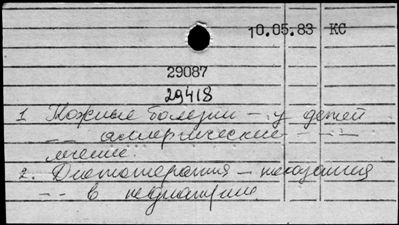 10.05.83 КС
29087
29418
1 Кожные болезни -- у детей
-- аллергические -- --
лечение.
2. Диетотерапия -- показания
-- в педиатрии.